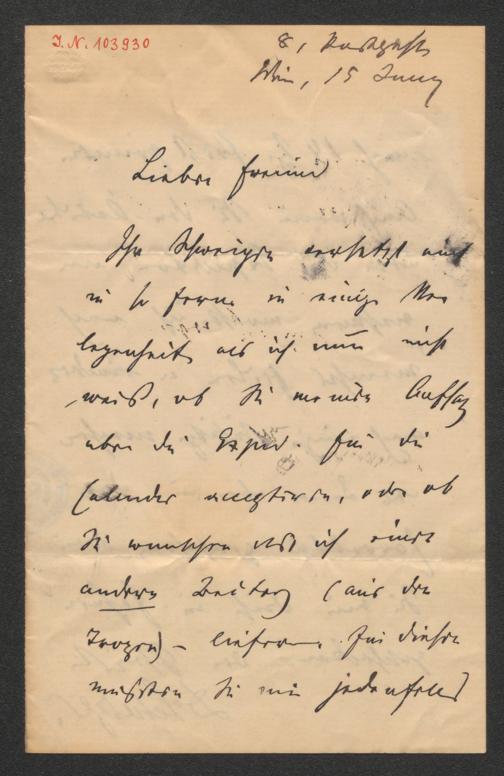 I.N. 103930
8,
Wien, 15 Juny
Lieber Freund
Ihr Schweigen versetzt mich
in so ferne in einige Ver
legenheit, als ich nun nicht
weiß, ob Sie meinen Aufsatz
über die Exped. für den
Calender acceptiren, oder ob
Sie wünschen daß ich einen
andern Beitrag (aus den
Tropen) – liefere. Für diesen
müssten Sie mir jedenfalls